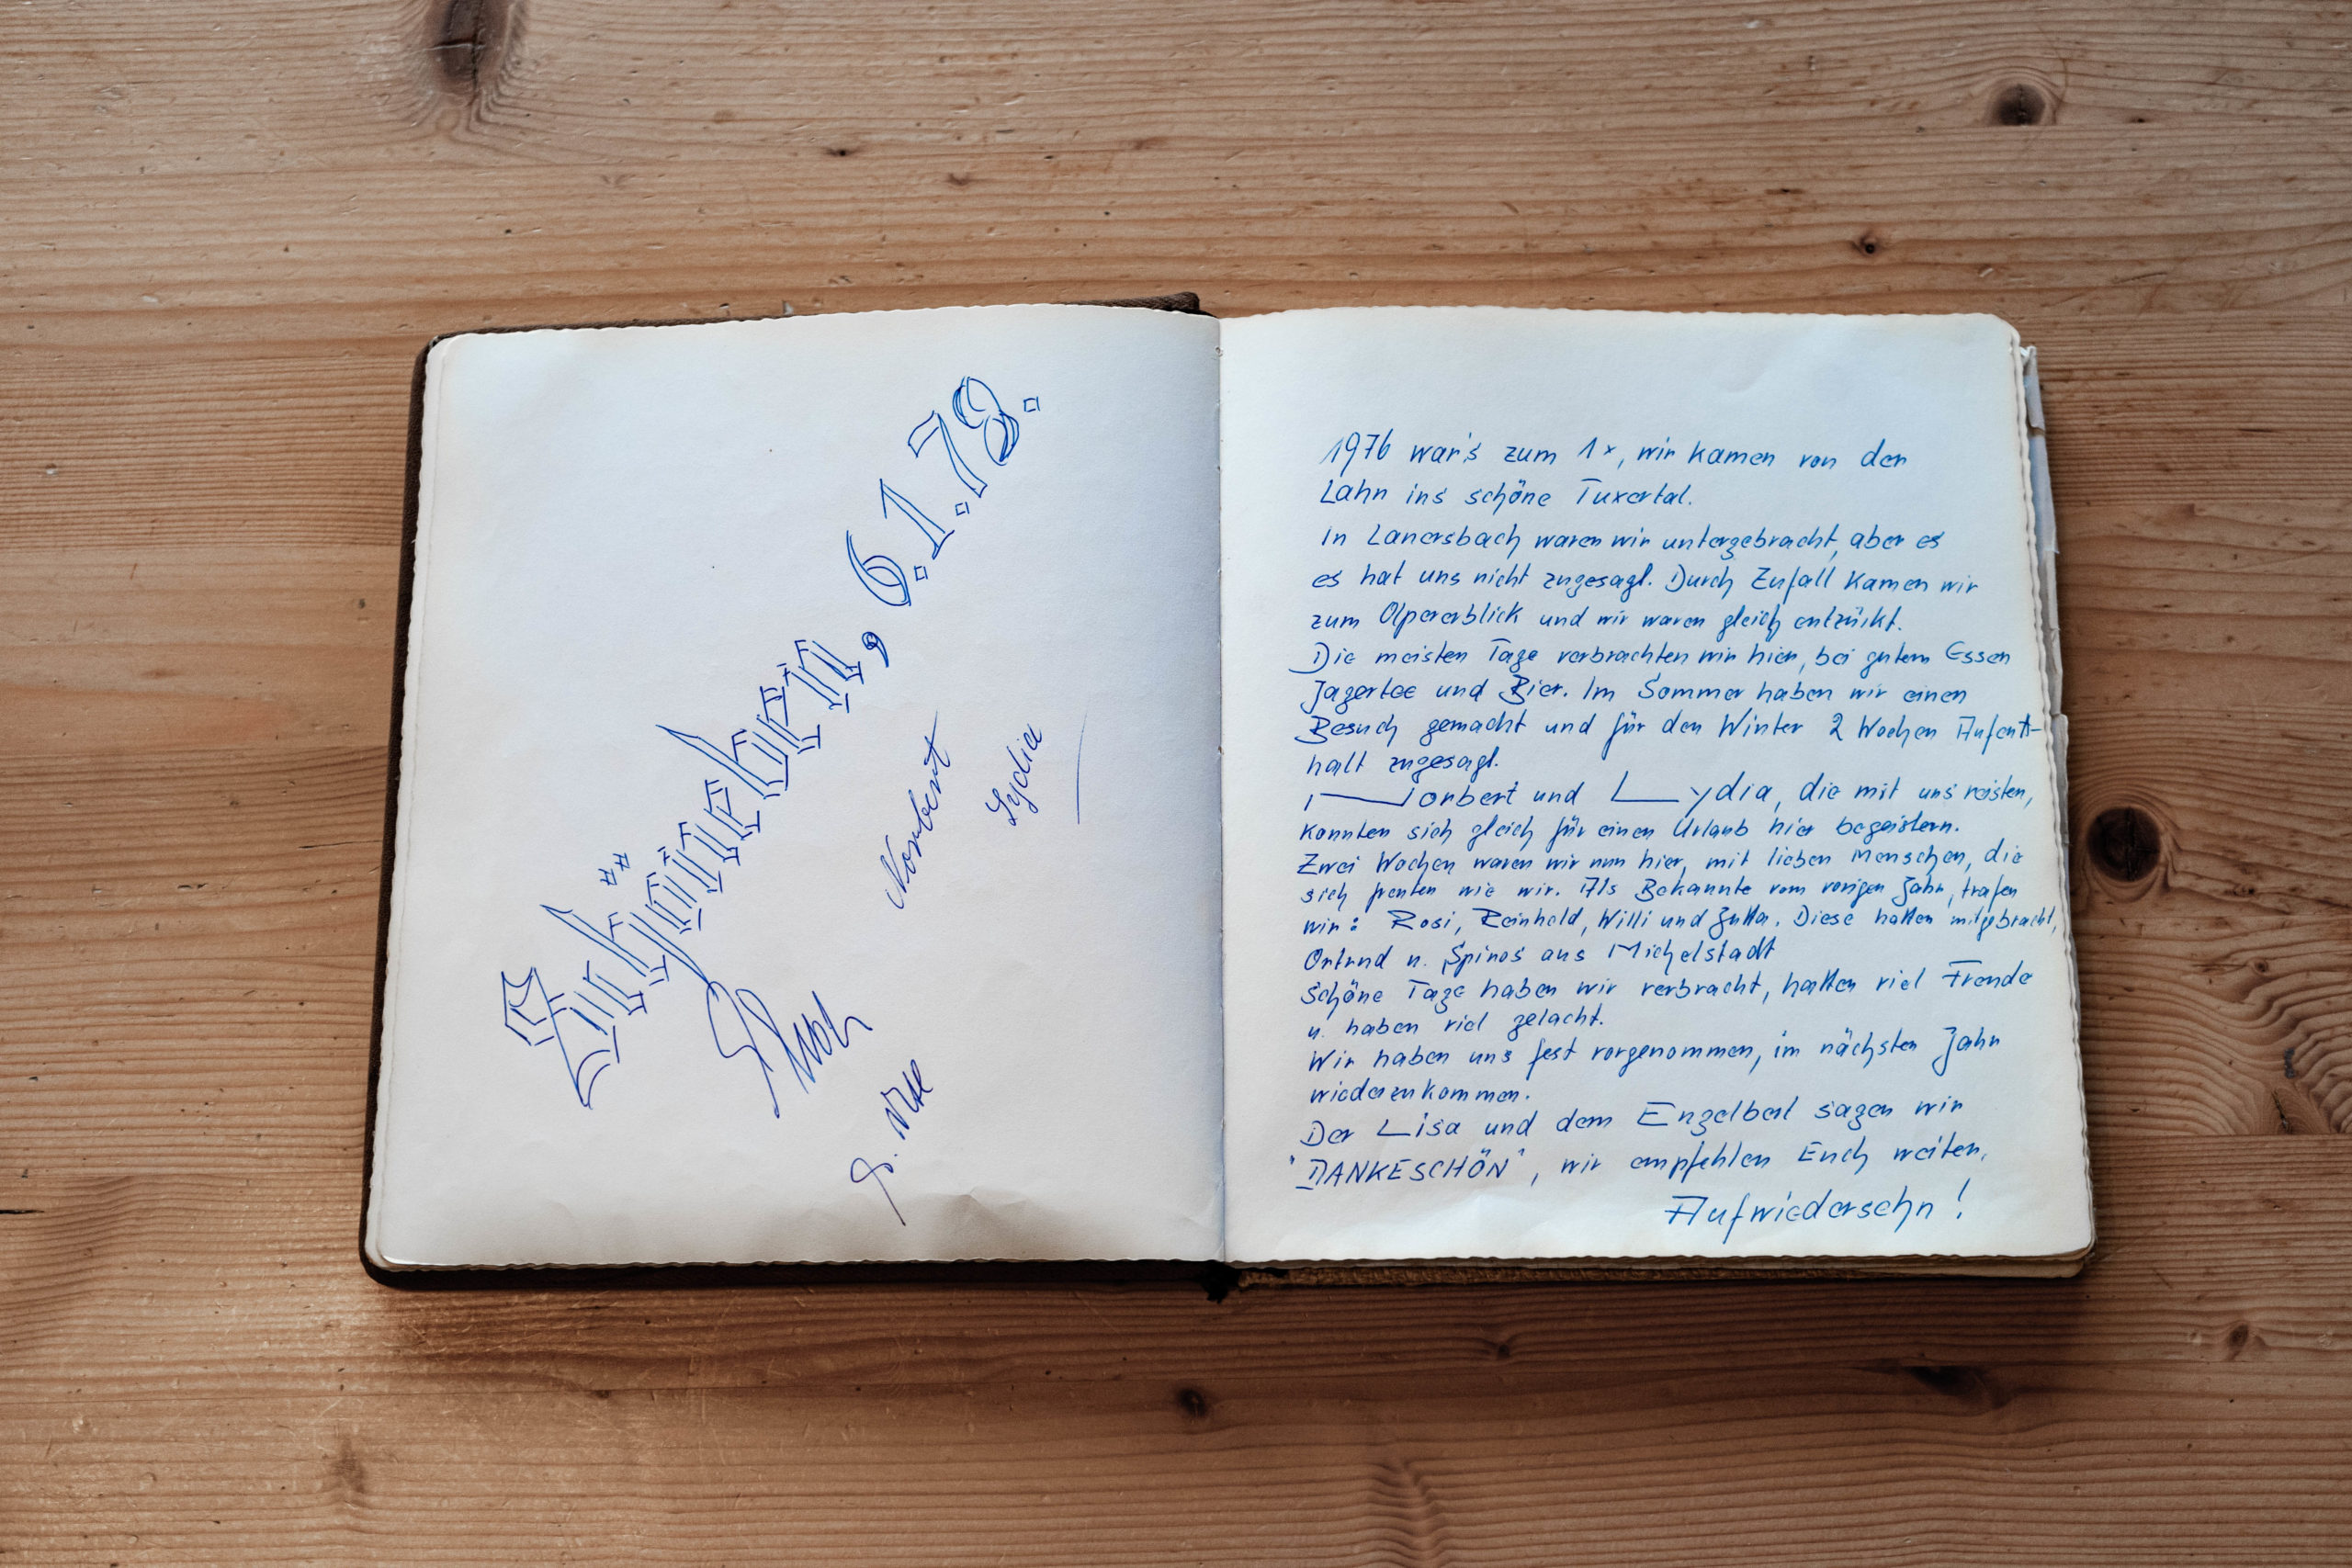 6.1.78.
Norbert
Lydia
1976 war's zum 1x, wir kamen von der
Lahn ins schöne Tuxertal.
In Lanersbach waren wir untergebracht, aber es
es hat uns nicht zugesagt. Durch Zufall kamen wir
zum Olpererblick und wir waren gleich entzückt.
Die meisten Tage verbrachten wir hier, bei gutem Essen
Jagertee und Bier. Im Sommer haben wir einen
Besuch gemacht und für den Winter 2 Wochen Aufent-
halt zugesagt.
Norbert und Lydia, die mit uns reisten,
konnten sich gleich für einen Urlaub hier begeistern.
Zwei Wochen waren wir nun hier, mit lieben Menschen, die
sich freuten wie wir. Als Bekannte vom vorigen Jahr, trafen
wir: Rosi, Reinhold, Willi und Jutta. Diese hatten mitgebracht,
Ortrud u. Spiros aus Michelstadt
Schöne Tage haben wir verbracht, hatten viel Freude
u. haben viel gelacht.
Wir haben uns fest vorgenommen, im nächsten Jahr
wiederzukommen.
Der Lisa und dem Engelbert sagen wir
"DANKESCHÖN", wir empfehlen Euch weiter.
Aufwiedersehn!